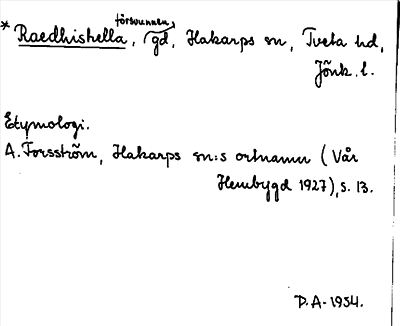 * Raedhishella, försvunnen, gd, Hakarps sn, Tveta hd,
Jönk. l.
Etymologi.
A. Forsström, Hakarps sn:s ortnamn (Vår
Hembygd 1927), s. 13.
D.A. 1954.